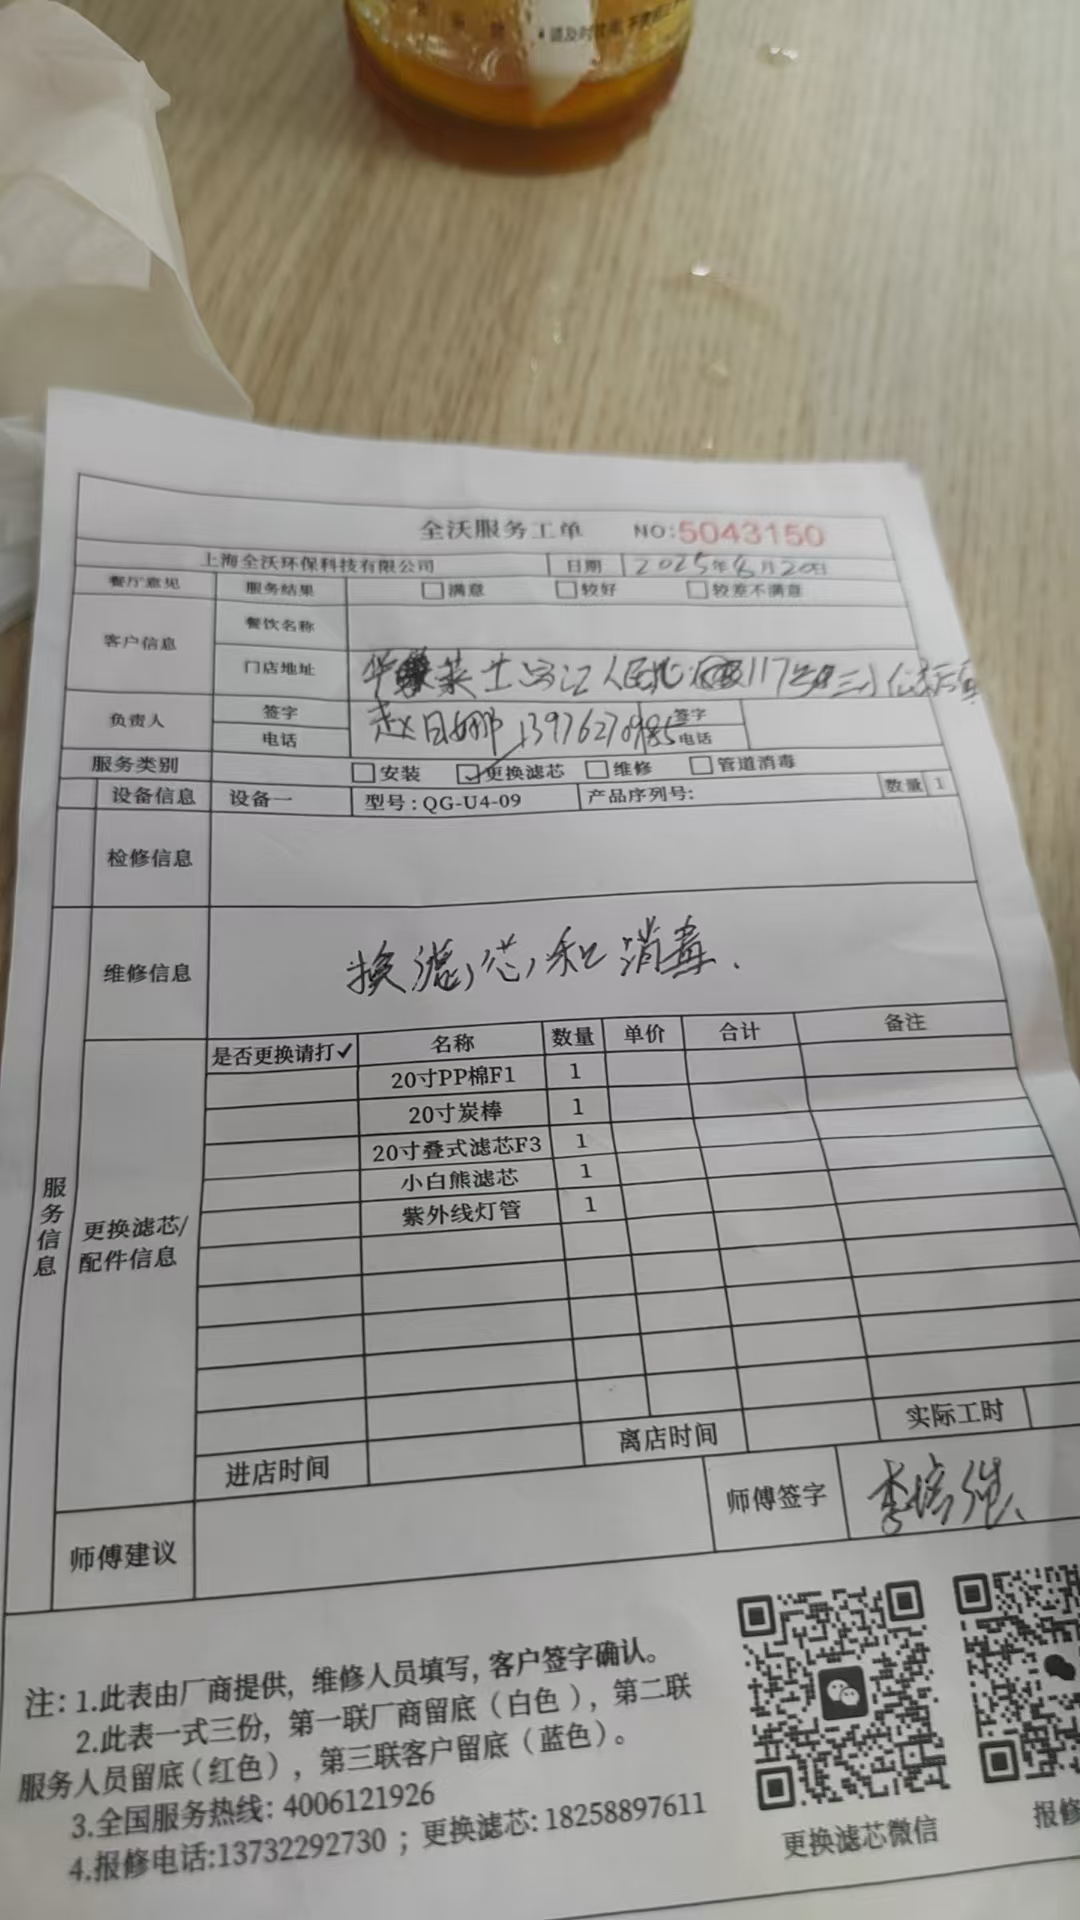 请及时饮用,不
全沃服务工单 NO:5043150
上海全沃环保科技有限公司 日期 2025年8月20日
餐厅意见 服务结果 满意 较好 较差不满意
客户信息 餐饮名称
门店地址 华莱士 人民 117
负责人 签字 赵日娜 签字
电话 电话
服务类别 安装 ✓更换滤芯 维修 管道消毒
设备信息 设备一 型号:QG-U4-09 产品序列号: 数量 1
检修信息
维修信息 换滤芯和消毒.
服务信息
更换滤芯/配件信息
是否更换请打✓ 名称 数量 单价 合计 备注
20寸PP棉F1 1
20寸炭棒 1
20寸叠式滤芯F3 1
小白熊滤芯 1
紫外线灯管 1
进店时间 离店时间 实际工时
师傅建议 师傅签字 李
注: 1.此表由厂商提供, 维修人员填写, 客户签字确认。
2.此表一式三份, 第一联厂商留底(白色), 第二联
服务人员留底(红色), 第三联客户留底(蓝色)。
3.全国服务热线: 4006121926
4.报修电话:13732292730 ; 更换滤芯: 18258897611
更换滤芯微信
报修